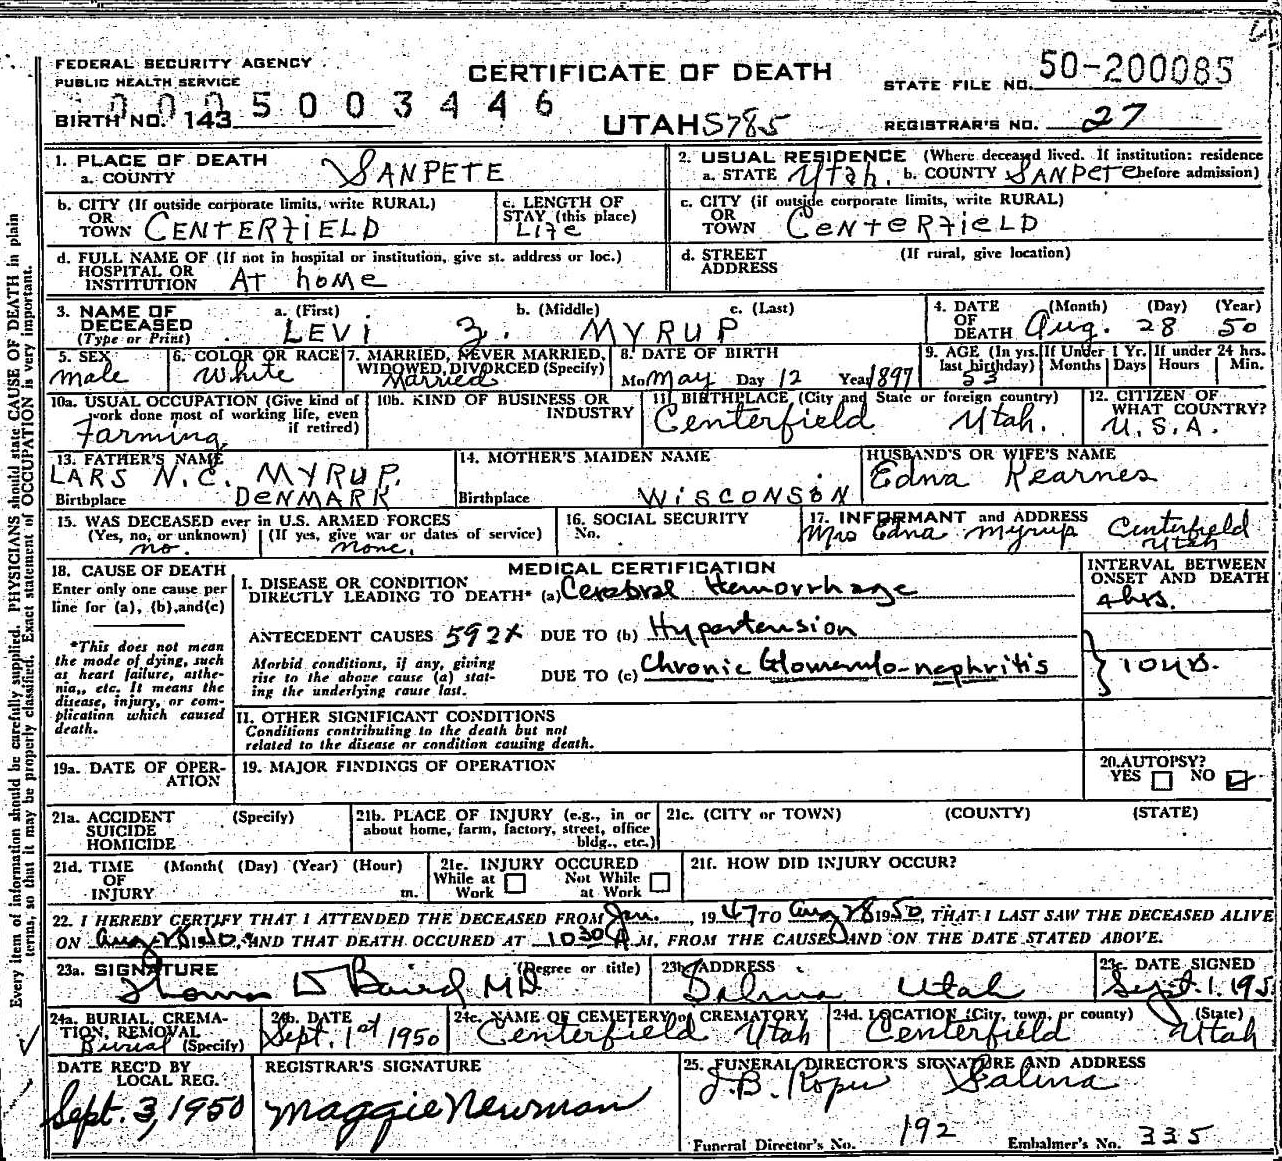 FEDERAL SECURITY AGENCY
PUBLIC HEALTH SERVICE
CERTIFICATE OF DEATH
STATE FILE NO. 50-200085
0005003446
BIRTH NO. 143
UTAH 5785
REGISTRAR'S NO. 27
1. PLACE OF DEATH
a. COUNTY SANPETE
2. USUAL RESIDENCE (Where deceased lived. If institution: residence before admission)
a. STATE Utah. b. COUNTY SANPETE
b. CITY (If outside corporate limits, write RURAL)
OR
TOWN CENTERFIELD
c. LENGTH OF
STAY (this place)
Life
c. CITY (if outside corporate limits, write RURAL)
OR
TOWN CENTERFIELD
d. FULL NAME OF (If not in hospital or institution, give st. address or loc.)
HOSPITAL OR
INSTITUTION At home
d. STREET
ADDRESS
(If rural, give location)
3. NAME OF
DECEASED
(Type or Print)
a. (First) b. (Middle) c. (Last)
LEVI Z. MYRUP
4. DATE
OF
DEATH
(Month) (Day) (Year)
Aug. 28 50
5. SEX
Male
6. COLOR OR RACE
White
7. MARRIED, NEVER MARRIED,
WIDOWED, DIVORCED (Specify)
Married
8. DATE OF BIRTH
Mo May Day 12 Year 1897
9. AGE (In yrs.
last birthday)
53
If Under 1 Yr.
Months Days
If under 24 hrs.
Hours Min.
10a. USUAL OCCUPATION (Give kind of
work done most of working life, even
if retired)
Farming
10b. KIND OF BUSINESS OR
INDUSTRY
11. BIRTHPLACE (City and State or foreign country)
Centerfield Utah.
12. CITIZEN OF
WHAT COUNTRY?
U.S.A.
13. FATHER'S NAME
LARS N.C. MYRUP.
Birthplace DENMARK
14. MOTHER'S MAIDEN NAME
Birthplace WISCONSIN
HUSBAND'S OR WIFE'S NAME
Edna Kearnes
15. WAS DECEASED ever in U.S. ARMED FORCES
(Yes, no, or unknown) (If yes, give war or dates of service)
no. none.
16. SOCIAL SECURITY
No.
17. INFORMANT and ADDRESS
Mrs Edna Myrup Centerfield
Utah
18. CAUSE OF DEATH
Enter only one cause per
line for (a), (b), and (c)
*This does not mean
the mode of dying, such
as heart failure, asthe-
nia,, etc. It means the
disease, injury, or com-
plication which caused
death.
MEDICAL CERTIFICATION
I. DISEASE OR CONDITION
DIRECTLY LEADING TO DEATH* (a) Cerebral Hemorrhage
ANTECEDENT CAUSES 592X DUE TO (b) Hypertension
Morbid conditions, if any, giving
rise to the above cause (a) stat-
ing the underlying cause last.
DUE TO (c) Chronic Glomerulo-nephritis
INTERVAL BETWEEN
ONSET AND DEATH
4 hrs.
10 yrs.
II. OTHER SIGNIFICANT CONDITIONS
Conditions contributing to the death but not
related to the disease or condition causing death.
19a. DATE OF OPER-
ATION
19. MAJOR FINDINGS OF OPERATION
20. AUTOPSY?
YES NO
21a. ACCIDENT
SUICIDE
HOMICIDE
(Specify)
21b. PLACE OF INJURY (e.g., in or
about home, farm, factory, street, office
bldg., etc.)
21c. (CITY or TOWN) (COUNTY) (STATE)
21d. TIME
OF
INJURY
(Month( (Day) (Year) (Hour)
m.
21e. INJURY OCCURED
While at Work Not While at Work
21f. HOW DID INJURY OCCUR?
22. I HEREBY CERTIFY THAT I ATTENDED THE DECEASED FROM Jan., 1947 TO Aug 28 1950, THAT I LAST SAW THE DECEASED ALIVE
ON Aug 28 1950, AND THAT DEATH OCCURED AT 10 30 A M, FROM THE CAUSES AND ON THE DATE STATED ABOVE.
23a. SIGNATURE (Degree or title)
Thomas D Baird MD
23b. ADDRESS
Salina Utah
23c. DATE SIGNED
Sept. 1. 195
24a. BURIAL, CREMA-
TION, REMOVAL
Burial (Specify)
24b. DATE
Sept. 1st 1950
24c. NAME OF CEMETERY or CREMATORY
Centerfield Utah
24d. LOCATION (City, town, or county) (State)
Centerfield Utah
DATE REC'D BY
LOCAL REG.
Sept. 3, 1950
REGISTRAR'S SIGNATURE
Maggie Newman
25. FUNERAL DIRECTOR'S SIGNATURE AND ADDRESS
J.B. Salina
Funeral Director's No. 192 Embalmer's No. 335
Every item of information should be carefully supplied. PHYSICIANS should state CAUSE OF DEATH in plain
terms, so that it may be properly classified. Exact statement of OCCUPATION is very important.